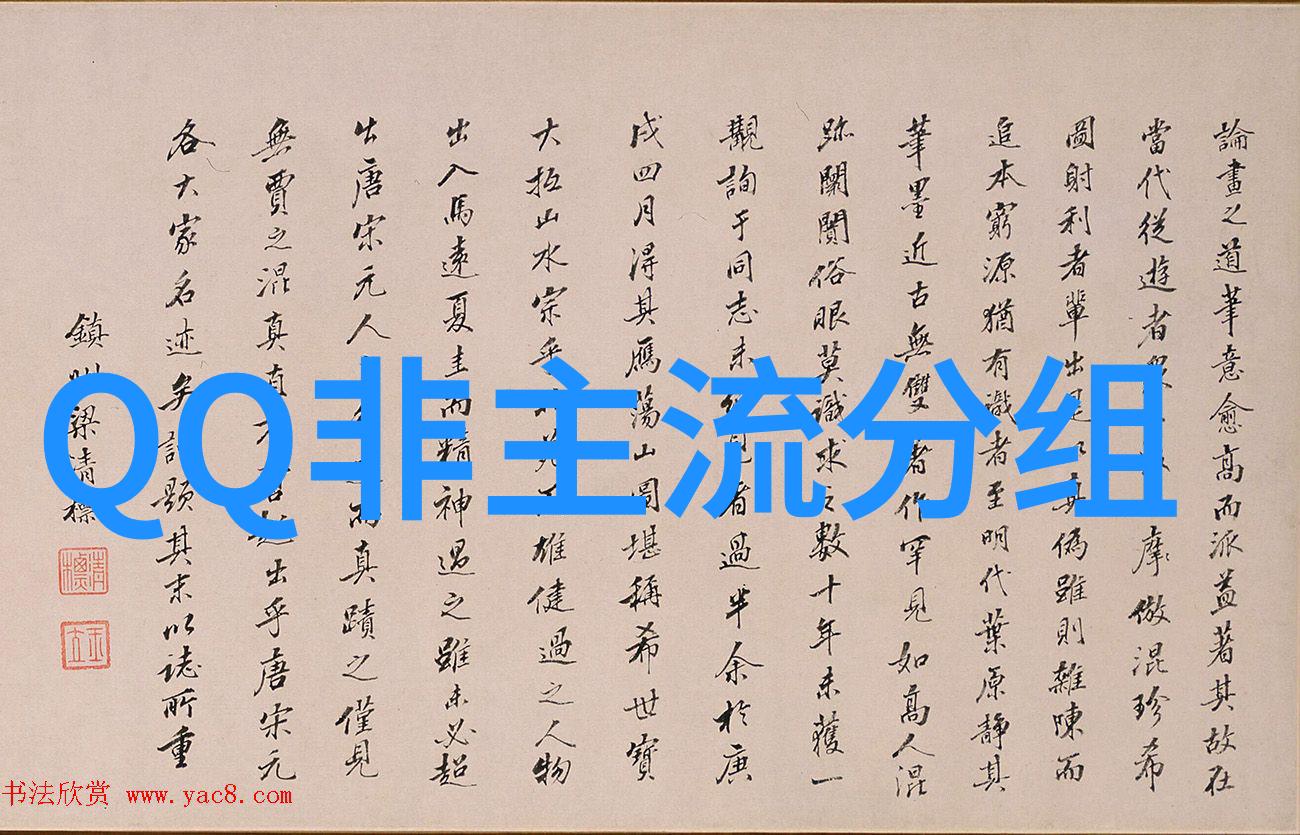 論畫之道筆意愈高而派益著其故在
當代從遊者
摩倣混珍希
圖射利者輩出是以真偽雖則雜陳而
追本窮源猶有識者至明代葉原靜其
筆墨近古無雙者作罕見如高人混
跡闤闠俗眼莫識求之數十年未獲一
觀詢于同志未
者過半余於庚
戌四月得其雁蕩山圖堪稱希世寶
大抵山水宗乎
雄健過之人物
出入馬遠夏圭而精神過之雖未必超
出唐宋元人之
而真蹟之僅見
無賈之混真真
出乎唐宋元
各大家名迹矣謹題其末以誌所重
鎮州梁清標
清標
QQ非主流分组
书法欣赏 www.yac8.com